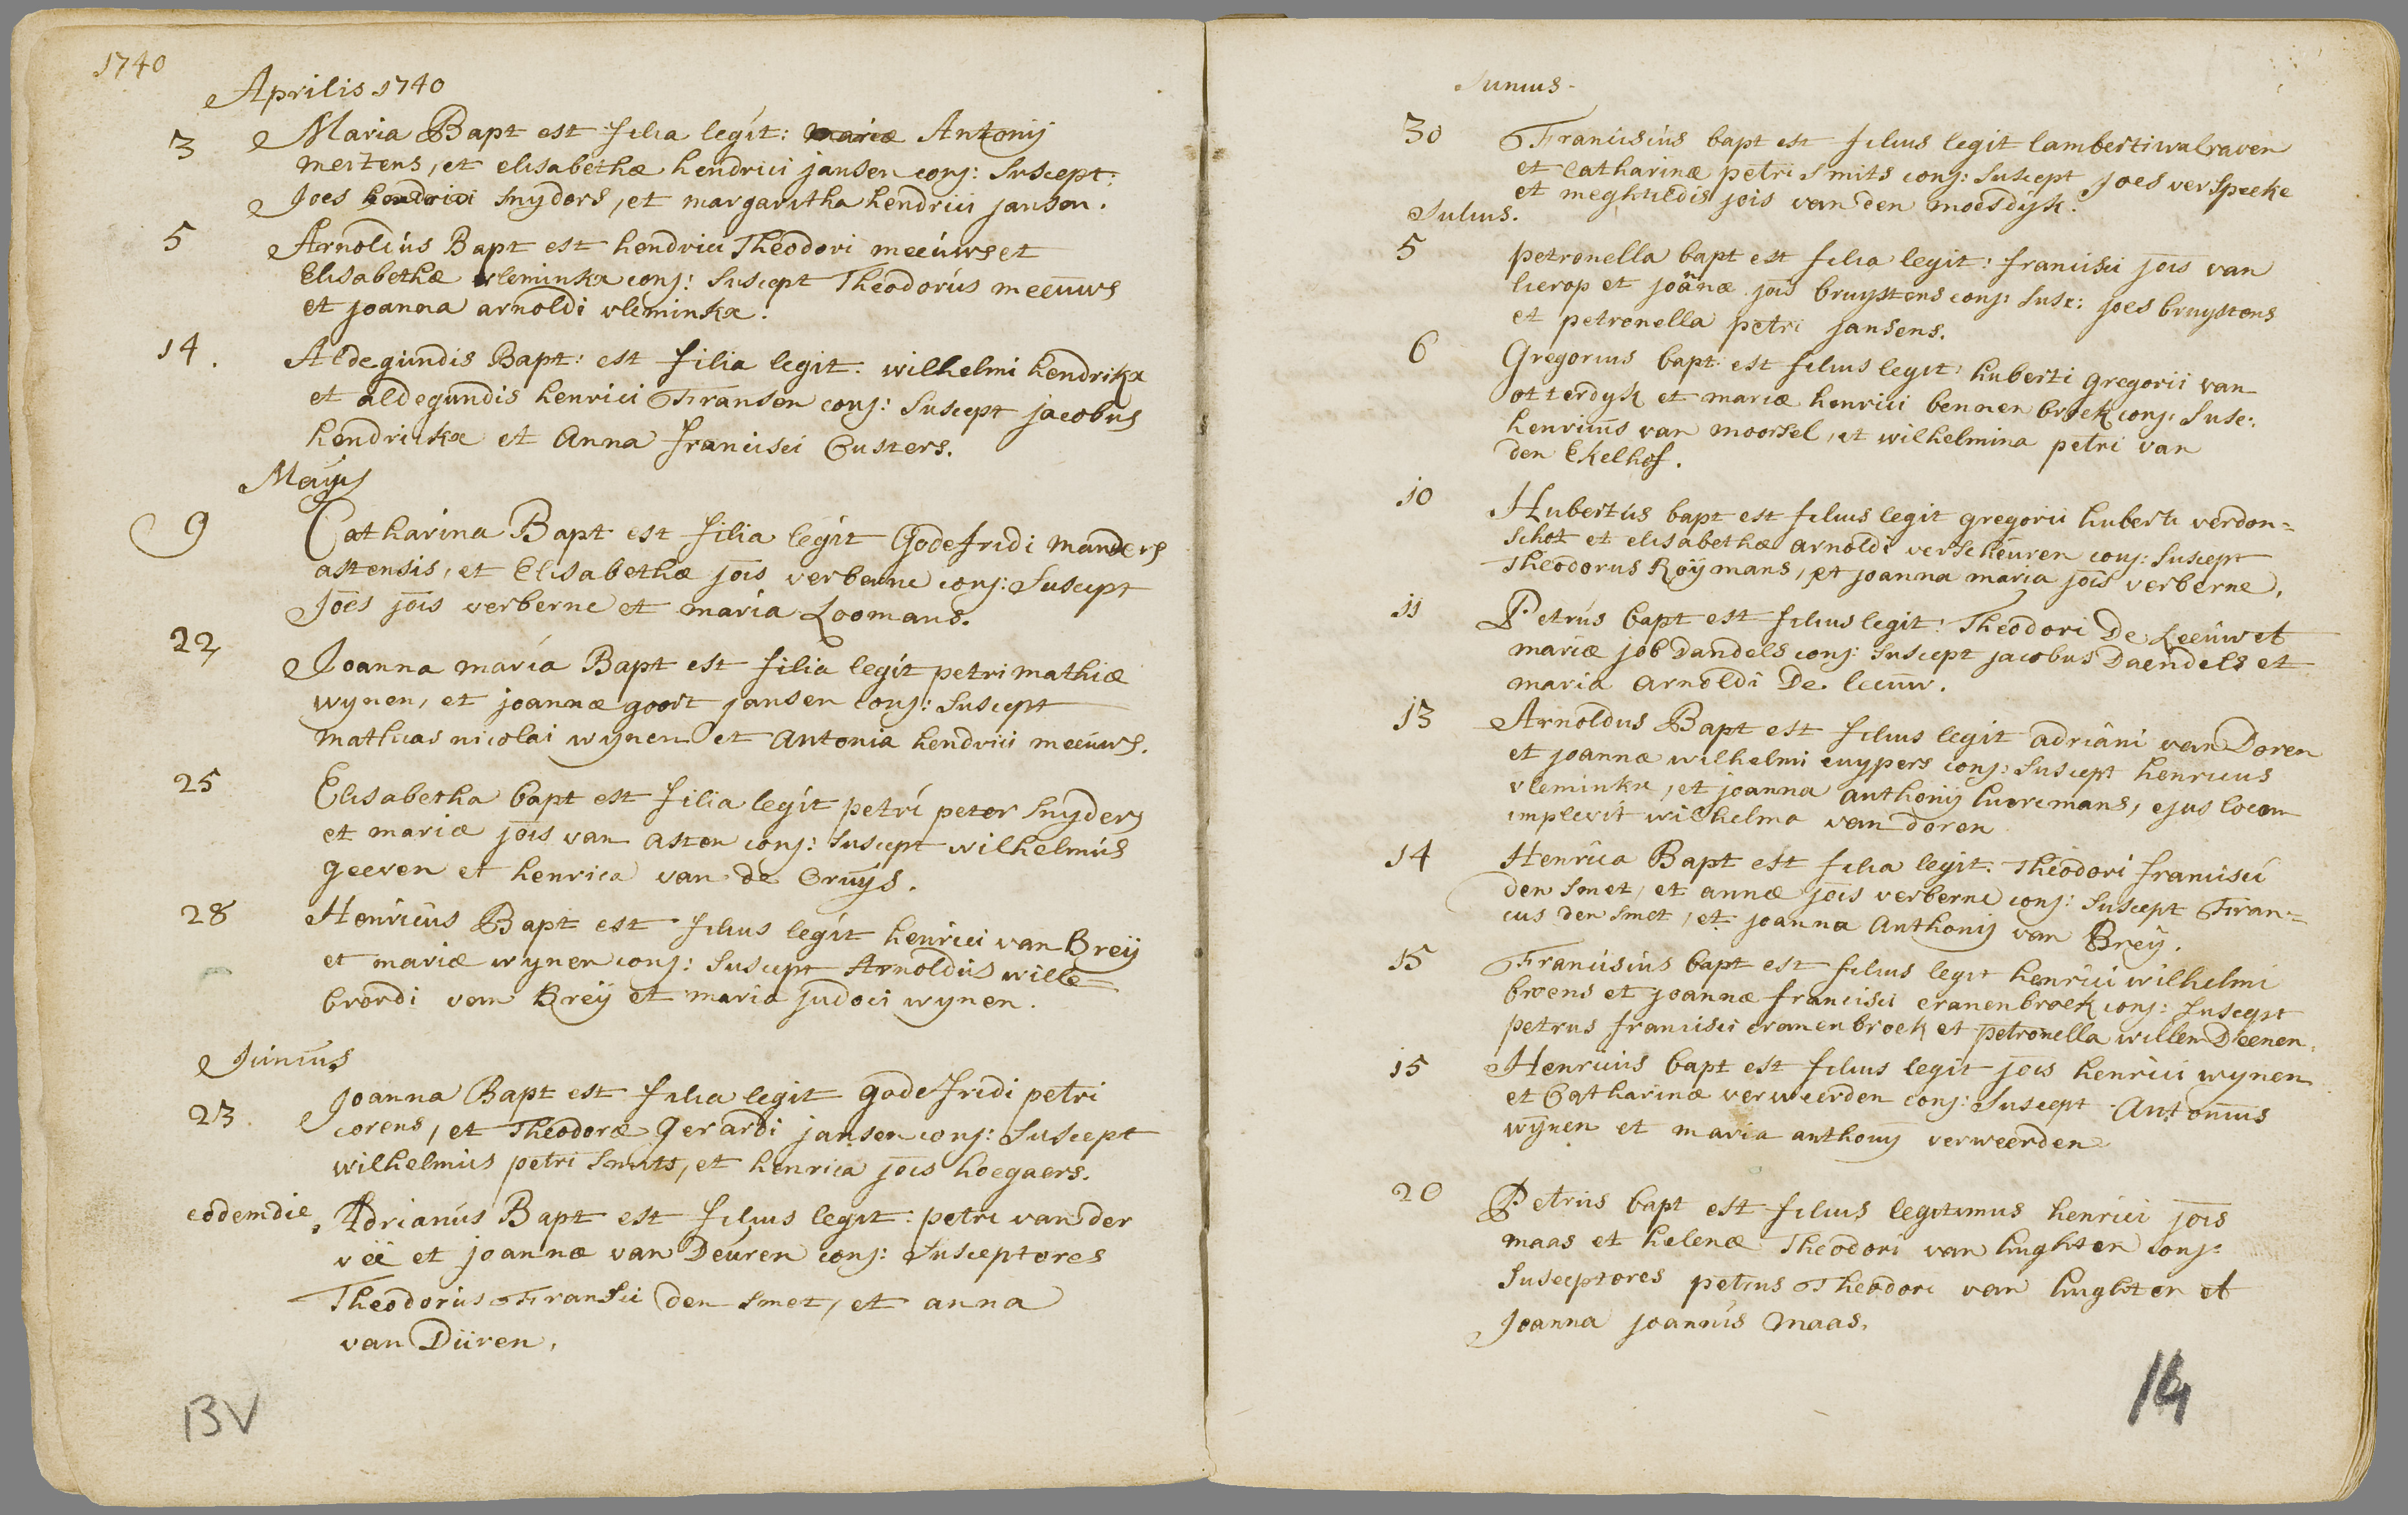 1740
Aprilis 1740
3 Maria Bapt est filia legit: mariæ Antonij
mertens, et elisabethæ hendrici jansen conj: Suscept:
Joes hendrici Snyders, et margaritha hendrici jansen.
5 Arnoldus Bapt est hendrici Theodori meeuws et
Elisabethæ vleminkx conj: Suscept Theodorus meeuws
et joanna arnoldi vleminkx.
14. Aldegundis Bapt: est filia legit: wilhelmi hendrikx
et aldegundis henrici Fransen conj: Suscept jacobus
hendrickx et Anna francisci Custers.
Majus
9 Catharina Bapt est filia legit Godefridi manders
astensis, et Elisabethæ jois verberne conj: Suscept
Joes jois verberne et maria Loomans.
22 Joanna maria Bapt est filia legit petri mathiæ
wynen, et joannæ goort jansen conj: Suscept
mathias nicolai wynen et Antonia hendrici meeuws.
25 Elisabetha bapt est filia legit petri peter Snyders
et mariæ jois van asten conj: Suscept wilhelmus
geeven et henrica van de Cruys.
28 Henricus Bapt est filius legit henrici van Breij
et mariæ wynen conj: Suscept Arnoldus wille-
brordi van Breij et maria judoci wynen.
Junius
23. Joanna Bapt est filia legit godefridi petri
corens, et Theodoræ Gerardi jansen conj: Suscept
wilhelmus petri Smits, et henrica jois hoegaers.
eodem die, Adrianus Bapt est filius legit: petri van der
vee et joannæ van Deuren conj: Susceptores
Theodorus Fransci den smet, et anna
van Düren.
13V
Junius.
30 Franciscus bapt est filius legit lamberti walraven
et Catharinæ petri Smits conj: Suscept Joes verspeeke
et meghtildis jois van den moesdijk.
Julius.
5 petronella bapt est filia legit: francisci jois van
lierop et joänæ jois bruystens conj: Susc: joes bruystens
et petronella petri jansens.
6 Gregorius bapt est filius legit huberti gregorii van
otterdyk et mariæ henrici bennenbroek conj: Susc:
henricus van moorsel, et wilhelmina petri van
den Ekelhof.
10 Hubertus bapt est filius legit gregorii huberti verdon=
schot et elisabethæ arnoldi verscheuren conj: Suscept
Theodorus Roymans, et joanna maria jois verberne.
11 Petrus bapt est filius legit: Theodori De Leeuw et
mariæ job Dandels conj: Suscept jacobus Daendels et
maria arnoldi De leeuw.
13 Arnoldus Bapt est filius legit adriani van Doren
et joannæ wilhelmi cuypers conj: Suscept henricus
vleminkx, et joanna anthonij huoremans, ejus locom
implevit wilhelma van doren
14 Henrica Bapt est filia legit: Theodori francisci
den smet, et annæ jois verberne conj: Suscept Fran=
cus den smet, et joanna Anthonij van Breij.
15 Franciscus bapt est filius legit henrici wilhelmi
broens et joannæ francisci cranenbroek conj: Suscept
petrus francisci cranenbroek et petronella willen Deenen.
15 Henricus bapt est filius legit jois henrici wynen
et Catharinæ verweerden conj: Suscept Antonius
wynen et maria anthonij verweerden
20 Petrus bapt est filius legitimus henrici jois
maas et helenæ Theodori van hughten conj:
Susceptores petrus Theodori van hughten et
Joanna joannis maas.
14